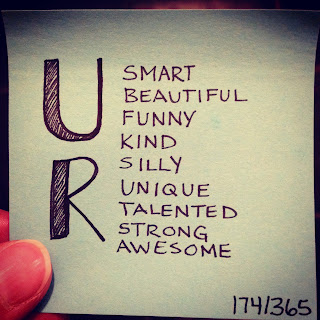 U R
SMART
BEAUTIFUL
FUNNY
KIND
SILLY
UNIQUE
TALENTED
STRONG
AWESOME
174/365